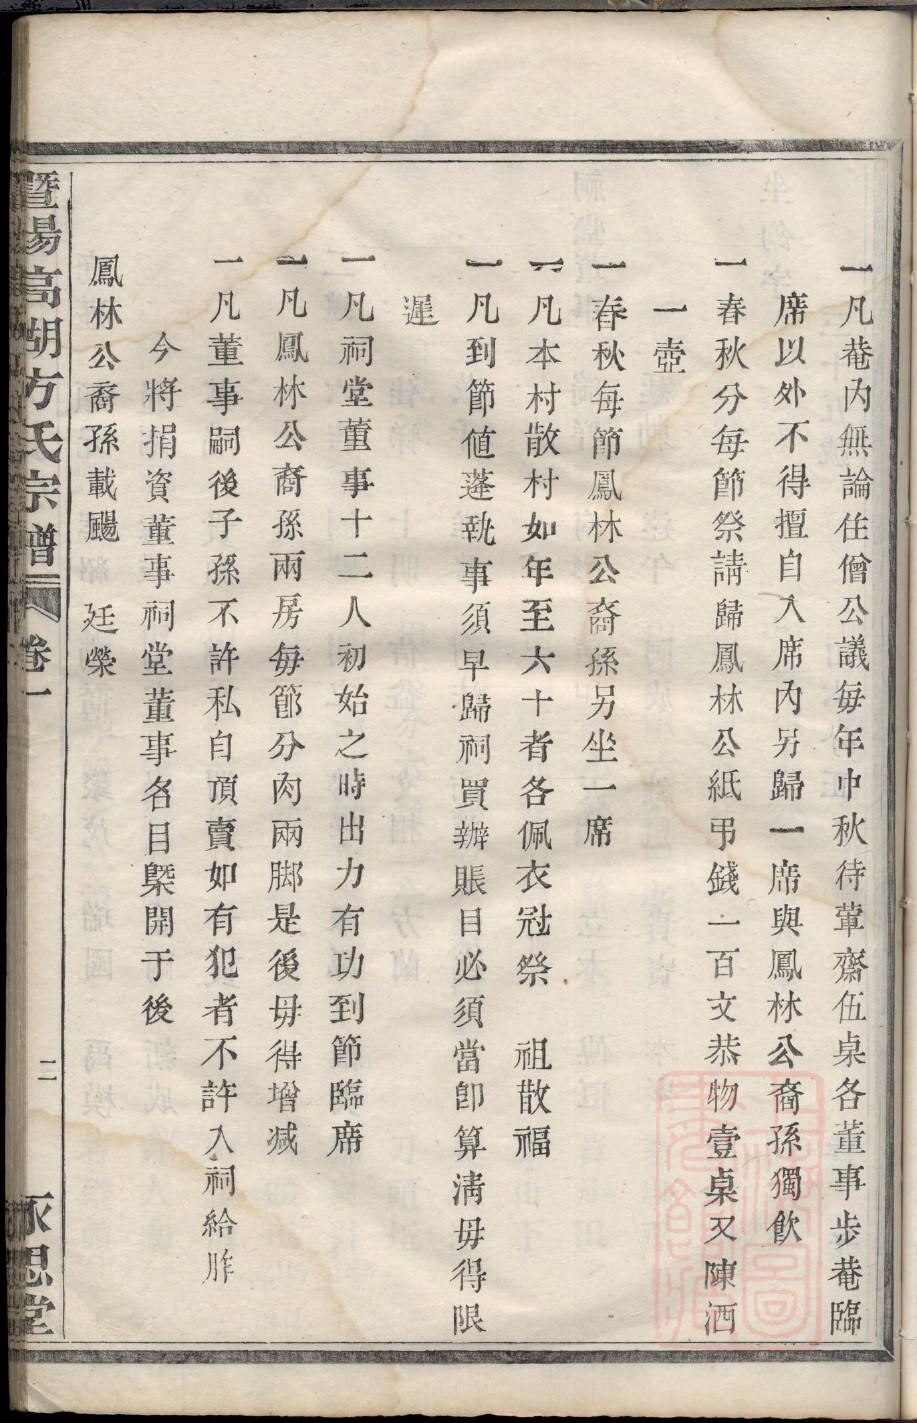 一凡菴內無論住僧公議每年中秋待葷齋伍桌各董事步菴臨
席以外不得擅自入席內另歸一席與鳳林公裔孫獨飲
一春秋分每節祭請歸鳳林公紙弔錢一百文恭物壹桌又陳酒
一壺
一春秋每節鳳林公裔孫另坐一席
一凡本村散村如年至六十者各佩衣冠祭　祖散福
一凡到節値蓬執事須早歸祠買辦賬目必須當卽算淸毋得限
遲
一凡祠堂董事十二人初始之時出力有功到節臨席
一凡鳳林公裔孫兩房每節分肉兩脚是後毋得增减
一凡董事嗣後子孫不許私自頂賣如有犯者不許入祠給胙
今將捐資董事祠堂董事名目槩開于後
鳳林公裔孫載颺　廷榮
暨陽高湖方氏宗譜　卷一　二　永思堂